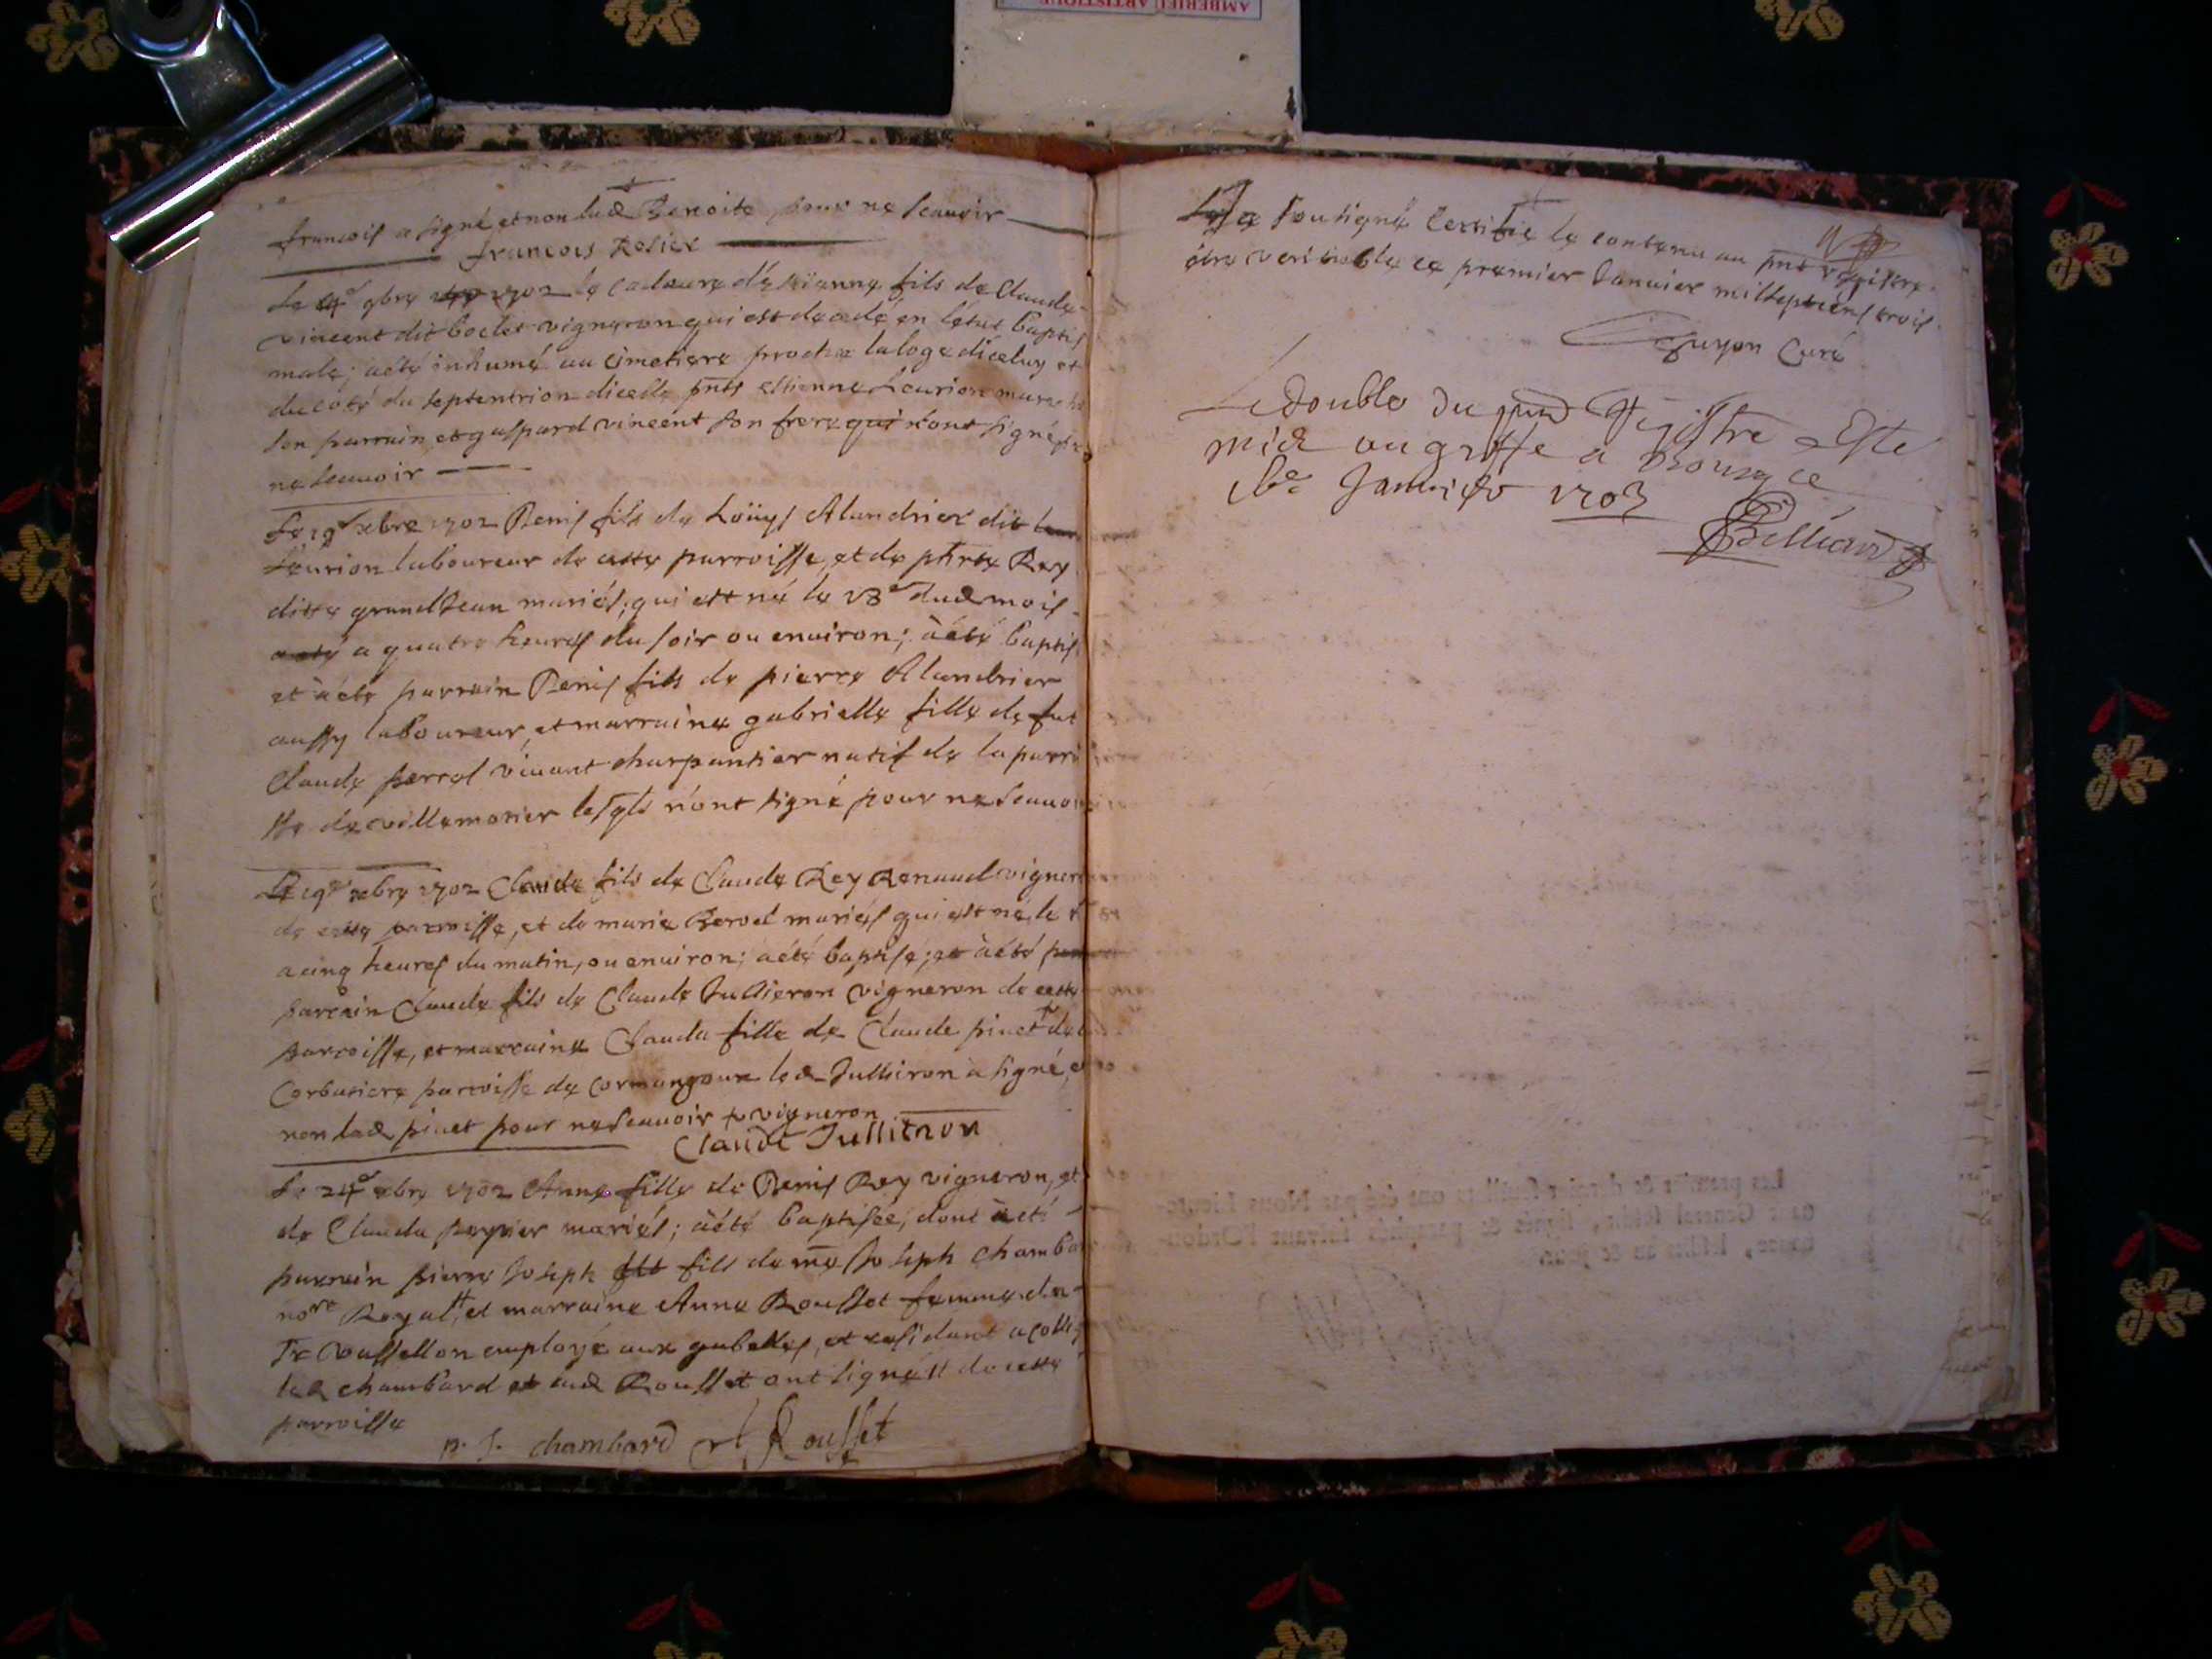 francois a signé et non lad Benoite pour ne scauoir
francois Rosier
le 4e 9bre 1702 le cadaure d'éstienne fils de Claude
vincent dit boclet vigneron qui est decedé en létat baptis
male; aété inhumé au Cimetiere proche laloge diceluy et
du côté du septentrion dicelle pnts estienne Leurion
son parrain et gaspard vincent son frere qui n'ont signé
ne scauoir
Le 19e xbre 1702 Denis fils de Loüys Alandrier dit
Leurion laboureur de cette parroisse, et de pnrte Rey
ditte grand Jean mariés; qui est né le 18e dud mois
a quatre heures du soir ou enuiron; àété baptis
et àété parrain Denis fils de pierre Alandrier
aussy laboureur, et marraine gabrielle fille de fut
Claude perrol viuant charpantier natif de la parroi
sse de villemotier lesqls n'ont signé pour ne scauoi
Le 19e xbre 1702 Claude fils de Claude Rey Renaud vigner
de cette parroisse, et de marie Berod mariés qui est né le
a cinq heures du matin, ou enuiron; aété baptisé; et àété
parrain Claude fils de Claude Jullieron vigneron de cette
parroisse, et marraine Clauda fille de Claude piuet + de
Corbatiere parroisse de Cormangoux led Jullieron à signé, e
non lad piuet pour ne scauoir + vigneron
Claude Jullieron
Le 24e xbre 1702 Anne fille de Denis Rey vigneron, et
de Clauda perrier mariés; àété baptisée; dont àété
parrain pierre Joseph fils de me Joseph chamba
nore Royal # et marraine Anne Rousset femme de
Sr Vassellon employé aux gabelles, et residant a coll
led chambard et lad Rousset ont signés # de cette
parroisse
p. J. chambard A Rousset
Je soussigné Certifie le contenu au pnt registre
étre veritable ce premier Januier mil sept cens trois
Guyon Curé
Le double du pnt Registre a Esté
mis au greffe a Bourg ce
Januier 1703
Billiard
Les premier & dernier feuillets ont été par Nous Lieute-
nant General susdit, signés & paraphés suivant l'Ordon-
nance, lesdits an & jour.